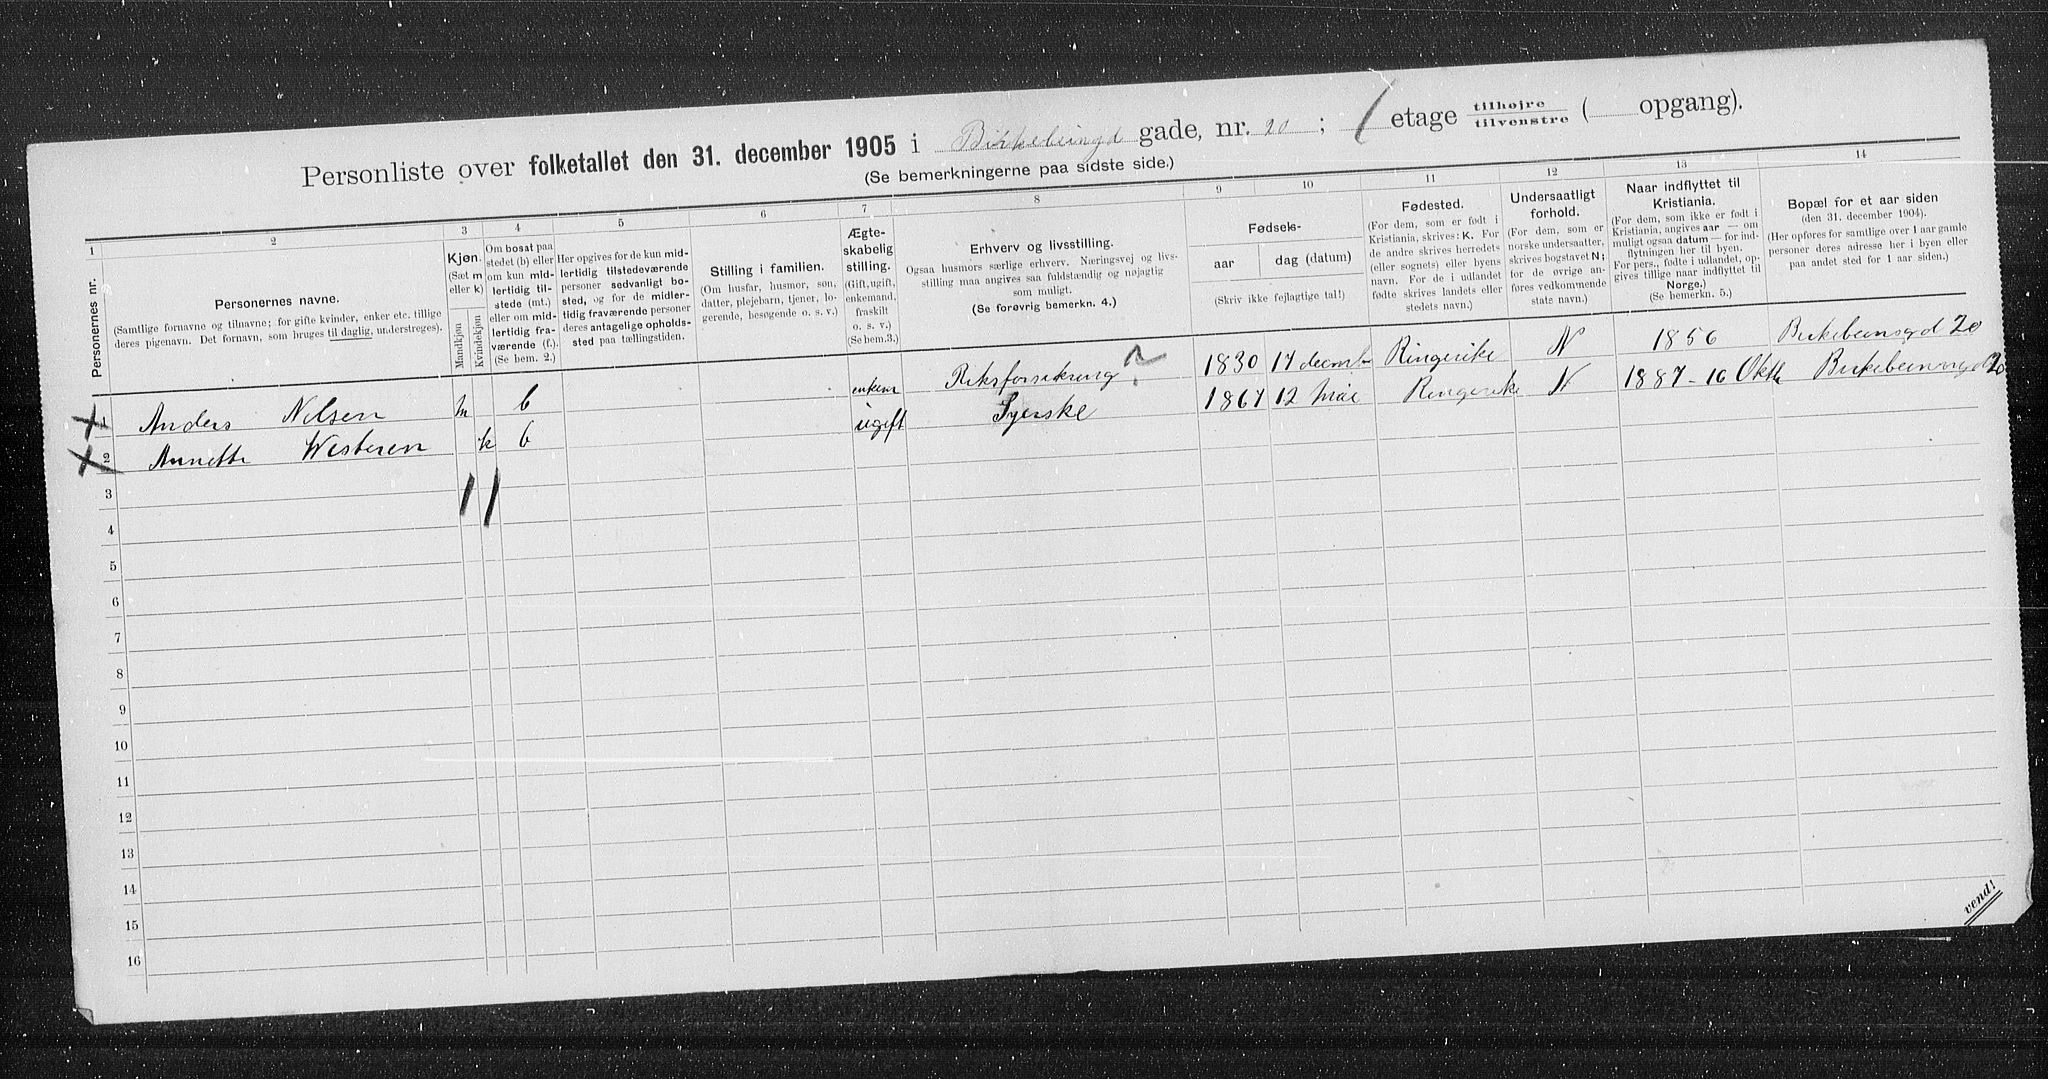 Personliste over folketallet den 31. december 1905 i Birkebeinergd gade, nr. 20; 1 etage tilhøjre / tilvenstre ( opgang).
(Se bemerkningerne paa sidste side.)
1 2 3 4 5 6 7 8 9 10 11 12 13 14
Personernes nr.
Personernes navne.
(Samtlige fornavne og tilnavne; for gifte kvinder, enker etc. tillige
deres pigenavn. Det fornavn, som bruges til daglig, understreges).
Kjøn.
(Sæt m
eller k)
Mandkjøn
Kvindekjøn
Om bosat paa
stedet (b) eller
om kun mid-
lertidig til-
stede (mt.)
eller om mid-
lertidig fra-
værende (f.).
(Se bem. 2.)
Her opgives for de kun mid-
lertidig tilstedeværende
personer sedvanligt bo-
sted, og for de midler-
tidig fraværende personer
deres antagelige opholds-
sted paa tællingstiden.
Stilling i familien.
(Om husfar, husmor, søn,
datter, plejebarn, tjener, lo-
gerende, besøgende o. s. v.)
Ægte-
skabelig
stilling.
(Gift, ugift,
enkemand,
fraskilt
o. s. v.)
(Se bem.3.)
Erhverv og livsstilling.
Ogsaa husmors særlige erhverv. Næringsvej og livs-
stilling maa angives saa fuldstændig og nøjagtig
som muligt.
(Se forøvrig bemerkn. 4.)
Fødsels-
aar
dag (datum)
(Skriv ikke fejlagtige tal!)
Fødested.
(For dem, som er født i
Kristiania, skrives: K. For
de andre skrives herredets
(eller sognets) eller byens
navn. For de i udlandet
fødte skrives landets eller
stedets navn.)
Undersaatligt
forhold.
(For dem, som er
norske undersaatter,
skrives bogstavet N;
for de øvrige an-
føres vedkommende
stats navn.)
Naar indflyttet til
Kristiania.
(For dem, som ikke er født i
Kristiania, angives aar — om
muligt ogsaa datum — for ind-
flytningen her til byen.
For pers., fødte i udlandet, op-
gives tillige naar indflyttet til
Norge.)
(Se bemerkn. 5.)
Bopæl for et aar siden
(den 31. december 1904).
(Her opføres for samtlige over 1 aar gamle
personer deres adresse her i byen eller
paa andet sted for 1 aar siden.)
1 Anders Nilsen m b enkem Riksforsikring ? 1830 17 decembr Ringerike N 1856 Birkebeinergd 20
2 Annette Westeren k b ugift Syerske 1867 12 Mai Ringerike N 1887 - 16 Oktb Birkebeinergd 20
3 1 1
4
5
6
7
8
9
10
11
12
13
14
15
16
vend!